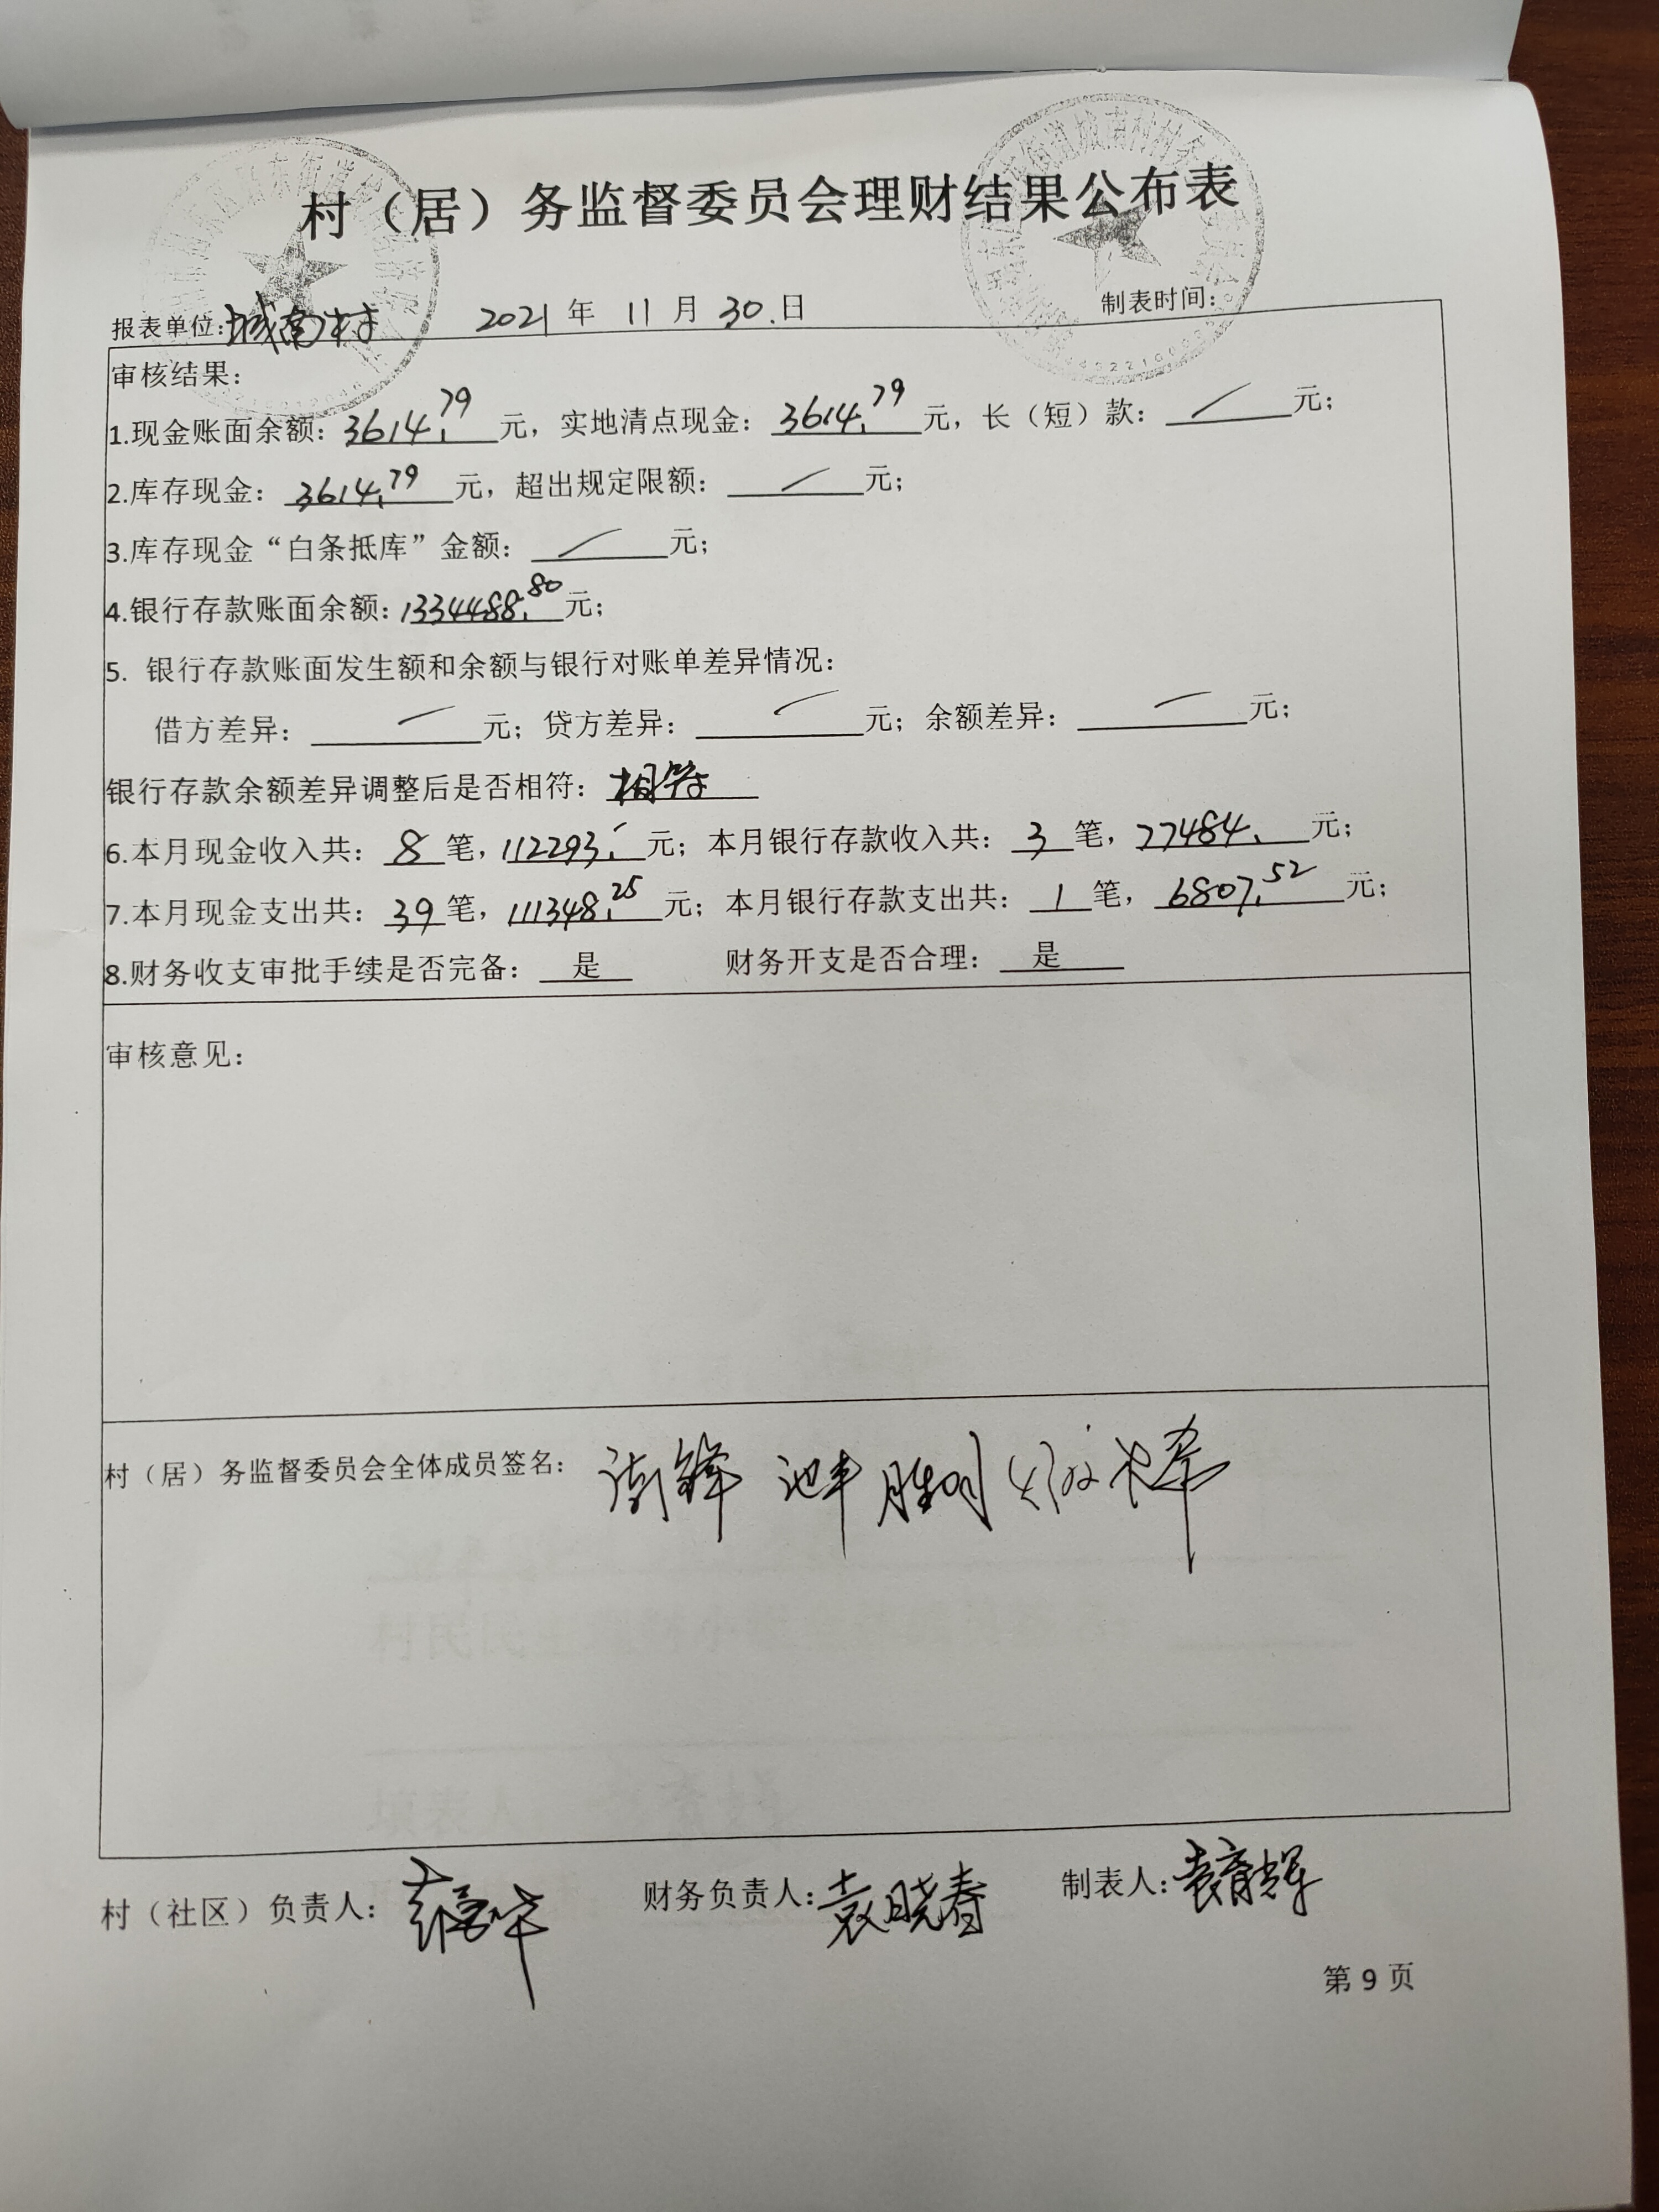 村（居）务监督委员会理财结果公布表
报表单位：城南村 2021 年 11 月 30.日 制表时间：
审核结果：
1.现金账面余额：3614.79元，实地清点现金：3614.79元，长（短）款：／元；
2.库存现金：3614.79元，超出规定限额：／元；
3.库存现金“白条抵库”金额：／元；
4.银行存款账面余额：1334488.80元；
5. 银行存款账面发生额和余额与银行对账单差异情况：
借方差异：／元；贷方差异：／元；余额差异：／元；
银行存款余额差异调整后是否相符：相符
6.本月现金收入共：8笔，112293.-元；本月银行存款收入共：3笔，27484.元；
7.本月现金支出共：39笔，111348.25元；本月银行存款支出共：1笔，6807.52元；
8.财务收支审批手续是否完备：是 财务开支是否合理：是
审核意见：
村（居）务监督委员会全体成员签名：
村（社区）负责人： 财务负责人：袁晓春 制表人：袁育辉
第 9 页